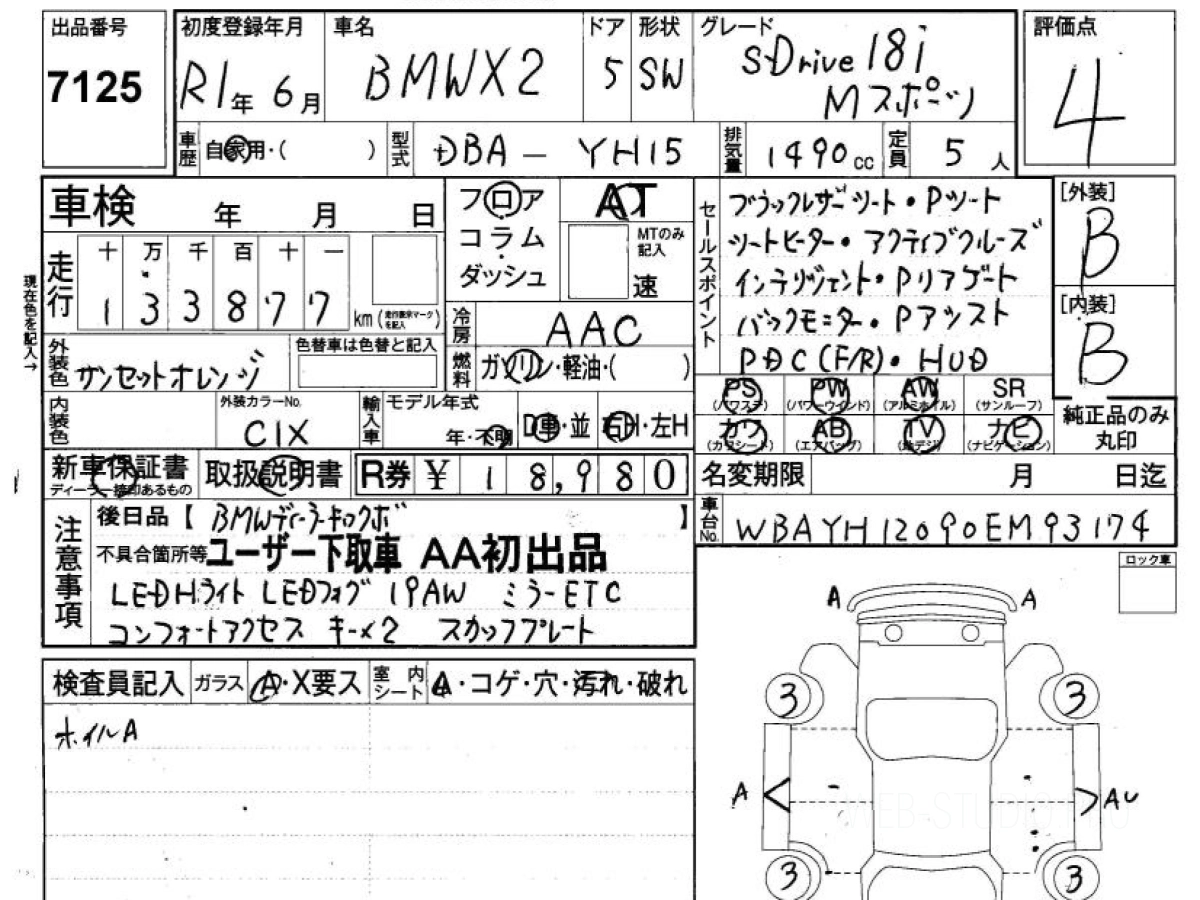 出品番号
7125
初度登録年月
R1年 6月
車名
BMWX2
ドア
5
形状
SW
グレード
sDrive 18i
Mスポーツ
評価点
4
車歴 自家用・( )
型式 DBA - YH15
排気量 1490cc
定員 5人
車検 年 月 日
走行
十 万 千 百 十 一
1 3 3 8 7 7
km(走行表示マークを記入)
現在色を記入→
フロア
コラム
ダッシュ
AT
MTのみ記入
速
冷房 AAC
燃料 ガソリン・軽油・( )
外装色 サンセットオレンジ
色替車は色替と記入
内装色
外装カラーNo.
C1X
輸入車
モデル年式
年・不明
D車・並
右H・左H
新車保証書
ディーラー捺印あるもの
取扱説明書
R券 ¥ 18,980
セールスポイント
ブラックレザーシート・Pシート
シートヒーター・アクティブクルーズ
インテリジェント・Pリアゲート
バックモニター・Pアシスト
PDC(F/R)・HUD
[外装]
B
[内装]
B
PS
(パワステ)
PW
(パワーウインド)
AW
(アルミホイル)
SR
(サンルーフ)
カワ
(カワシート)
AB
(エアバッグ)
TV
(地デジ)
ナビ
(ナビゲーション)
純正品のみ
丸印
名変期限 月 日迄
車台No. WBAYH12090EM93174
注意事項
後日品【BMWディーラーキロクボ 】
不具合箇所等 ユーザー下取車 AA初出品
LEDHライト LEDフォグ 19AW ミラーETC
コンフォートアクセス キー×2 スカッフプレート
検査員記入
ガラス A・X要ス
室内シート A・コゲ・穴・汚れ・破れ
ホイルA
ロック車
A A
3 3
A AU
WEB-STUDIO.PRO
3 3